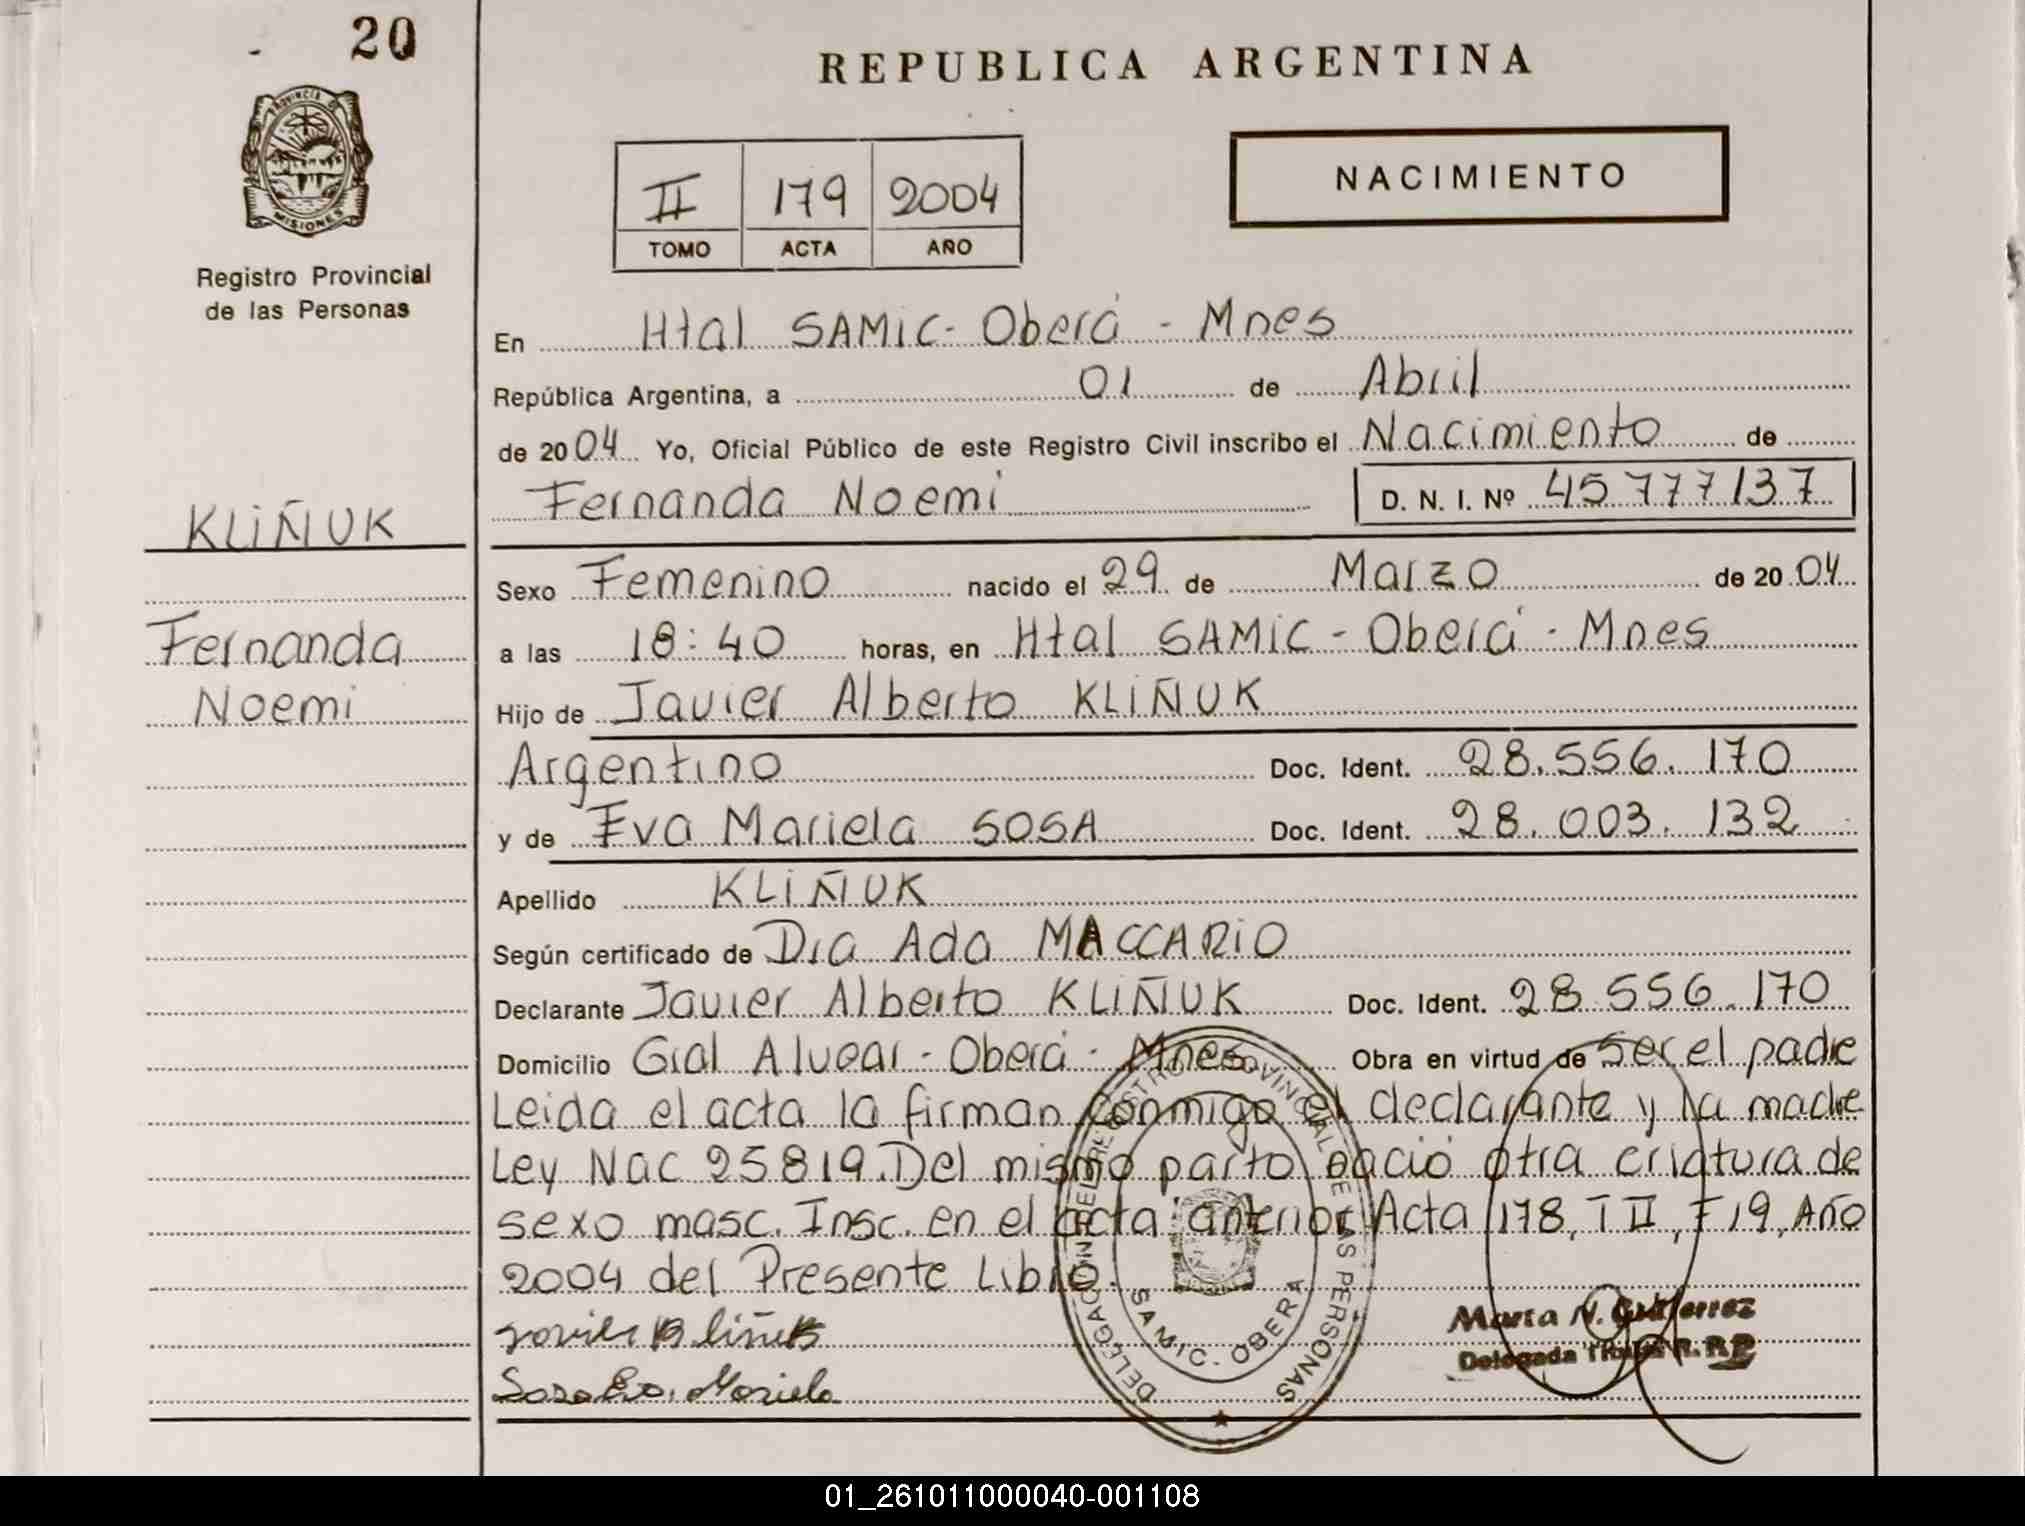 20
REPUBLICA ARGENTINA
PROVINCIA DE
MISIONES
Registro Provincial
de las Personas
II 179 2004
TOMO ACTA AÑO
NACIMIENTO
En Htal SAMIC - Oberá - Mnes
República Argentina, a 01 de Abril
de 2004 Yo, Oficial Público de este Registro Civil inscribo el Nacimiento de
Fernanda Noemi D. N. I. Nº 45777137
KLIÑUK
Fernanda
Noemi
Sexo Femenino nacido el 29 de Marzo de 2004
a las 18:40 horas, en Htal SAMIC - Oberá - Mnes
Hijo de Javier Alberto KLIÑUK
Argentino Doc. Ident. 28.556.170
y de Eva Mariela SOSA Doc. Ident. 28.003.132
Apellido KLIÑUK
Según certificado de Dra Ada MACCARIO
Declarante Javier Alberto KLIÑUK Doc. Ident. 28.556.170
Domicilio Gral Alvear - Oberá - Mnes Obra en virtud de ser el padre
Leida el acta la firman conmigo el declarante y la madre
Ley Nac 25819. Del mismo parto nació otra criatura de
sexo masc. Insc. en el acta anterior Acta 178, T II, F 19, Año
2004 del Presente Libro.
Sosa Eva Mariela
DELEGACION DEL REGISTRO PROVINCIAL DE LAS PERSONAS
SAMIC - OBERA
Maria N. Gutierrez
Delegada Titular R.P.P.
01_261011000040-001108